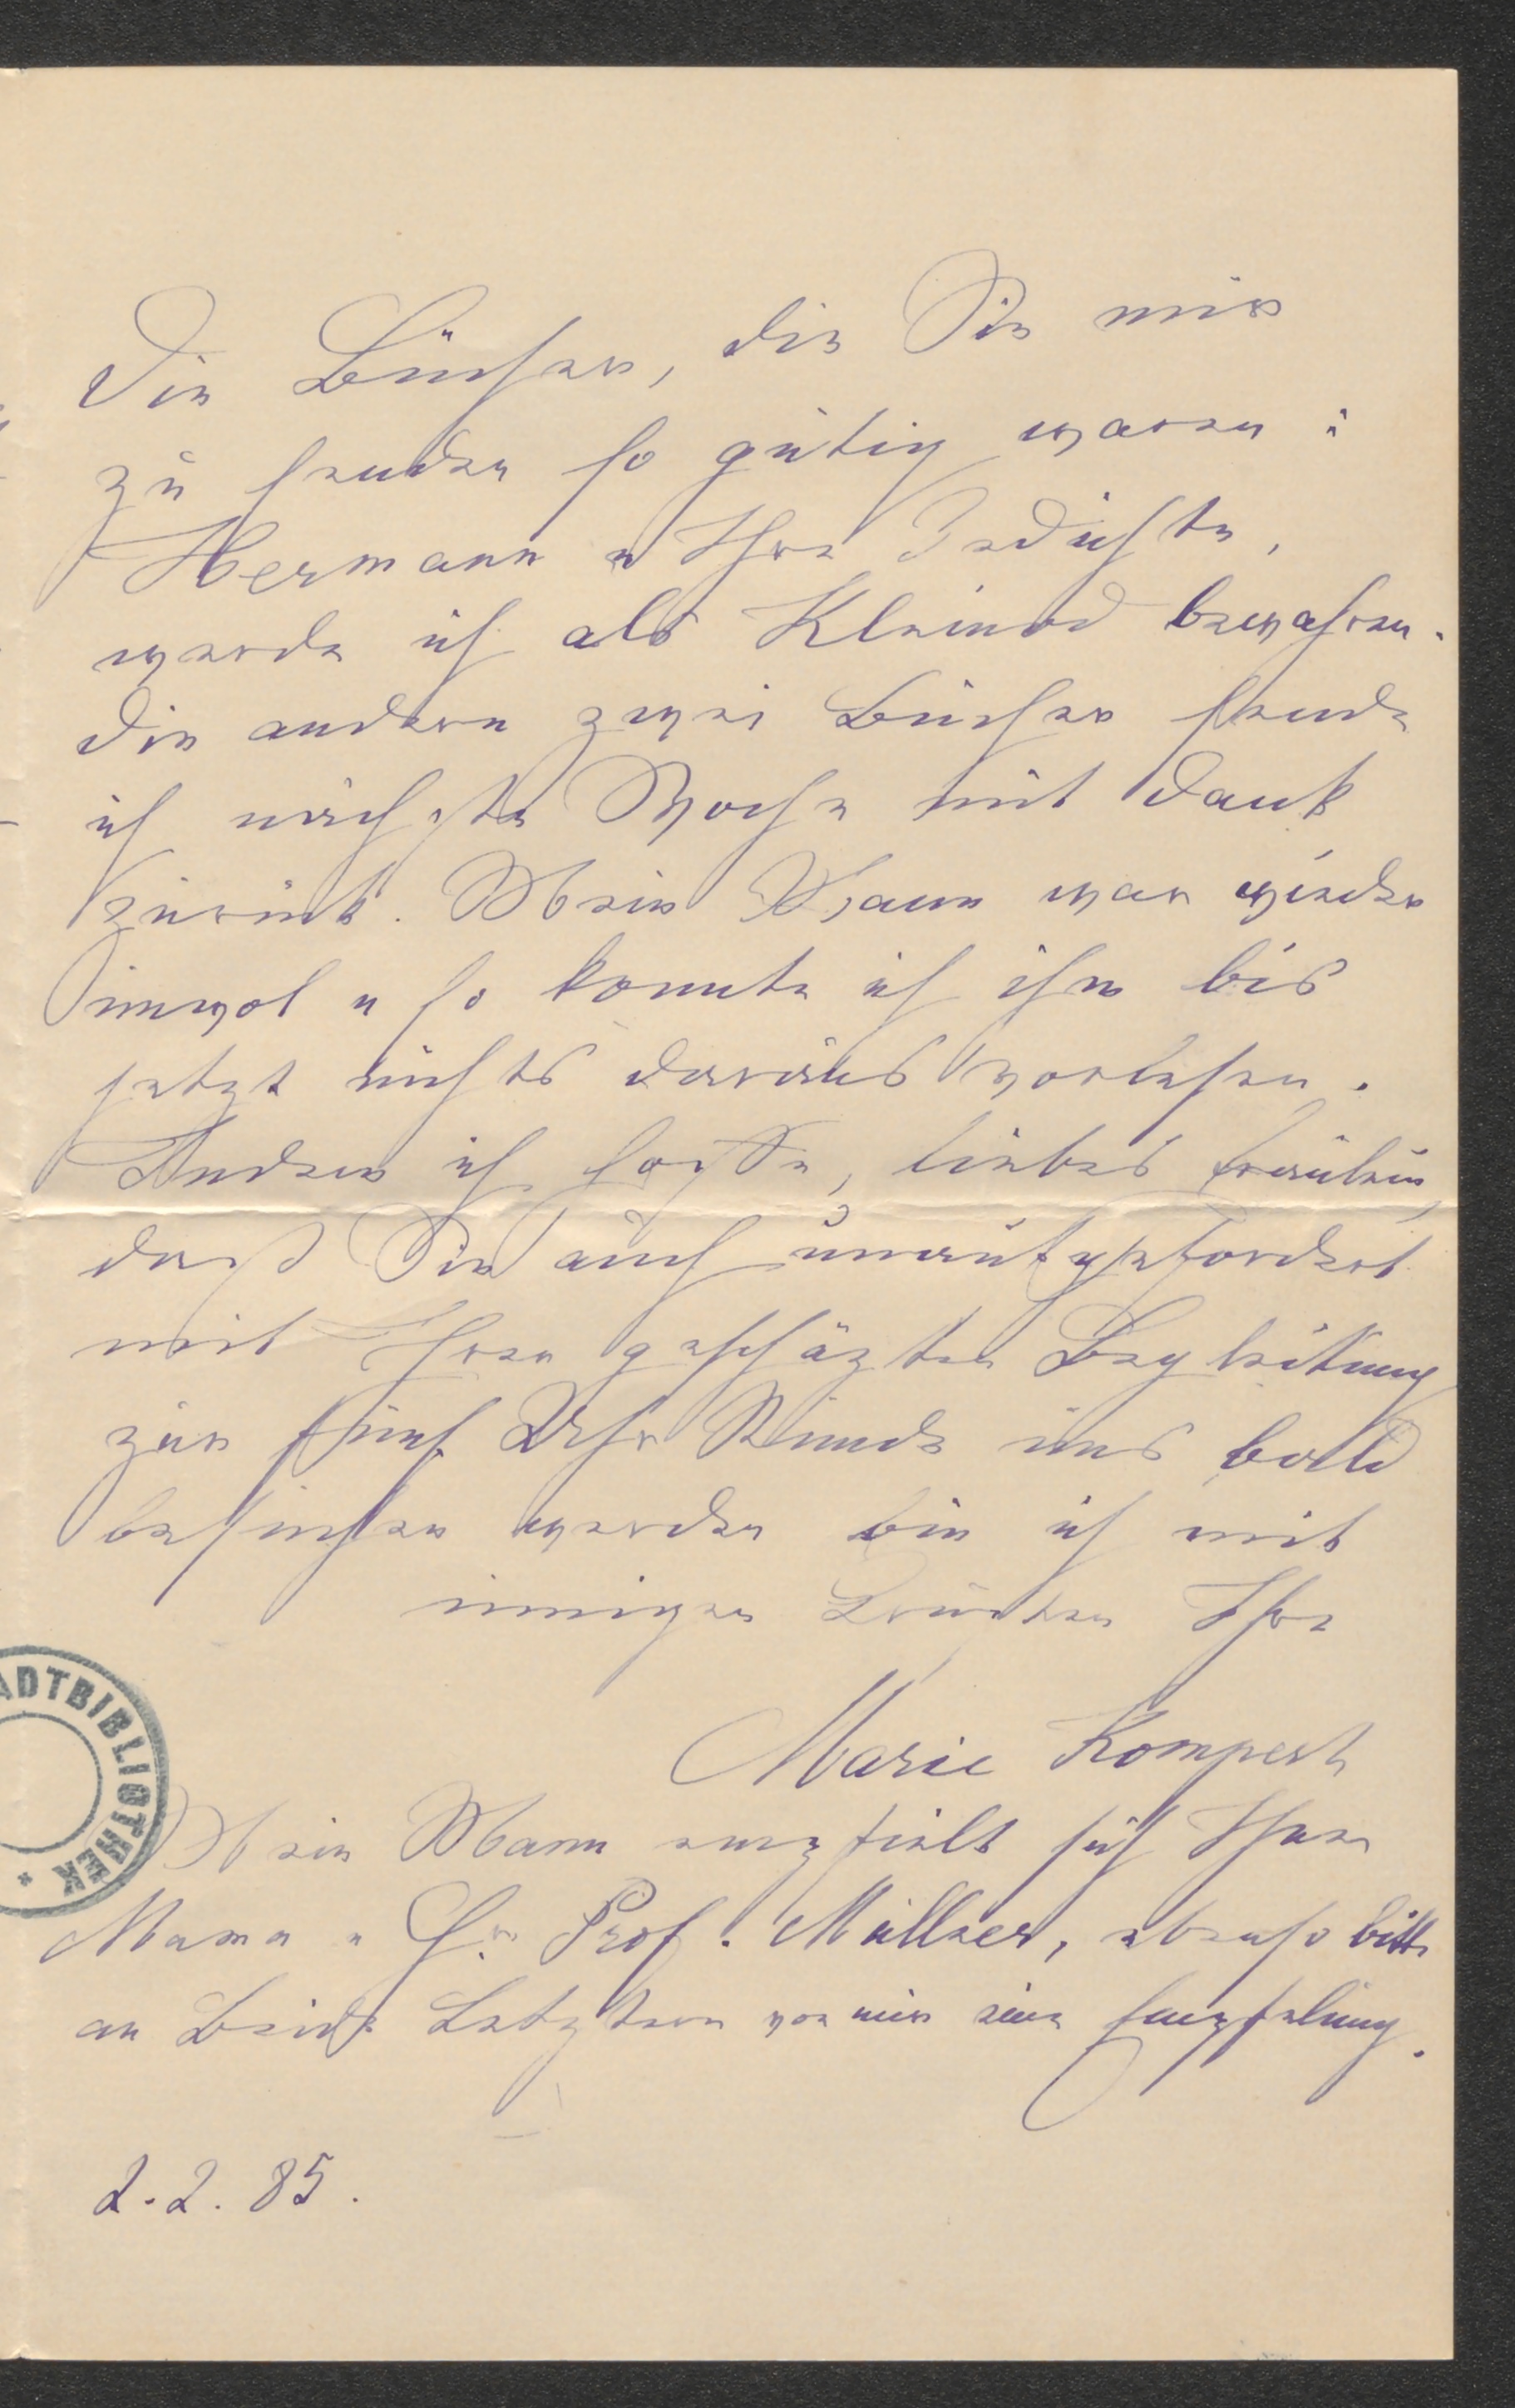 Die Bücher, die Sie mir
zu senden so gütig waren:
Hermann u Ihre Gedichte,
werde ich als Kleinod bewahren.
Die andern zwei Bücher sende
ich nächste Woche mit Dank
zurück. Mein Mann war wieder
unwol u so konnte ich ihm bis
jetzt nichts daraus vorlesen.
Indem ich hoffe, liebes Fräulein,
daß Sie auch unaufgefordert
mit Ihrer geschäzten Begleitung
zur fünf Uhr Stunde uns bald
besuchen werden bin ich mit
innigen Grüßen Ihre
Marie Kompert
Mein Mann empfielt sich Ihrer
Mama u H. Prof. Müllner, ebenso bitte
an Beide Letztern von mir eine Empfelung.
2. 2. 85.
ADTBIBLIOTHEK *